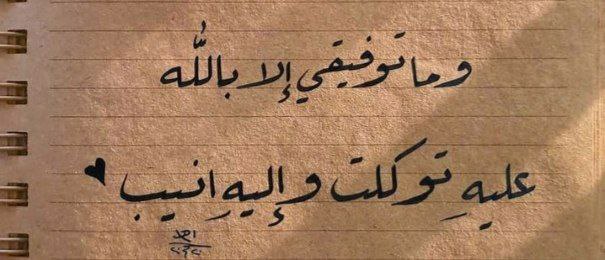 وما توفيقي إلا بالله
عليهِ توكلت وإليهِ انيب